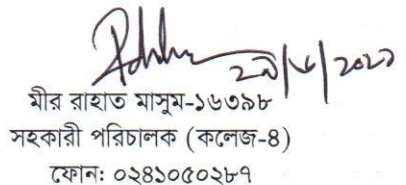 ২৯/৮/২০২১
মীর রাহাত মাসুম-১৬৩৯৮
সহকারী পরিচালক (কলেজ-৪)
ফোন: ০২৪১০৫০২৮৭